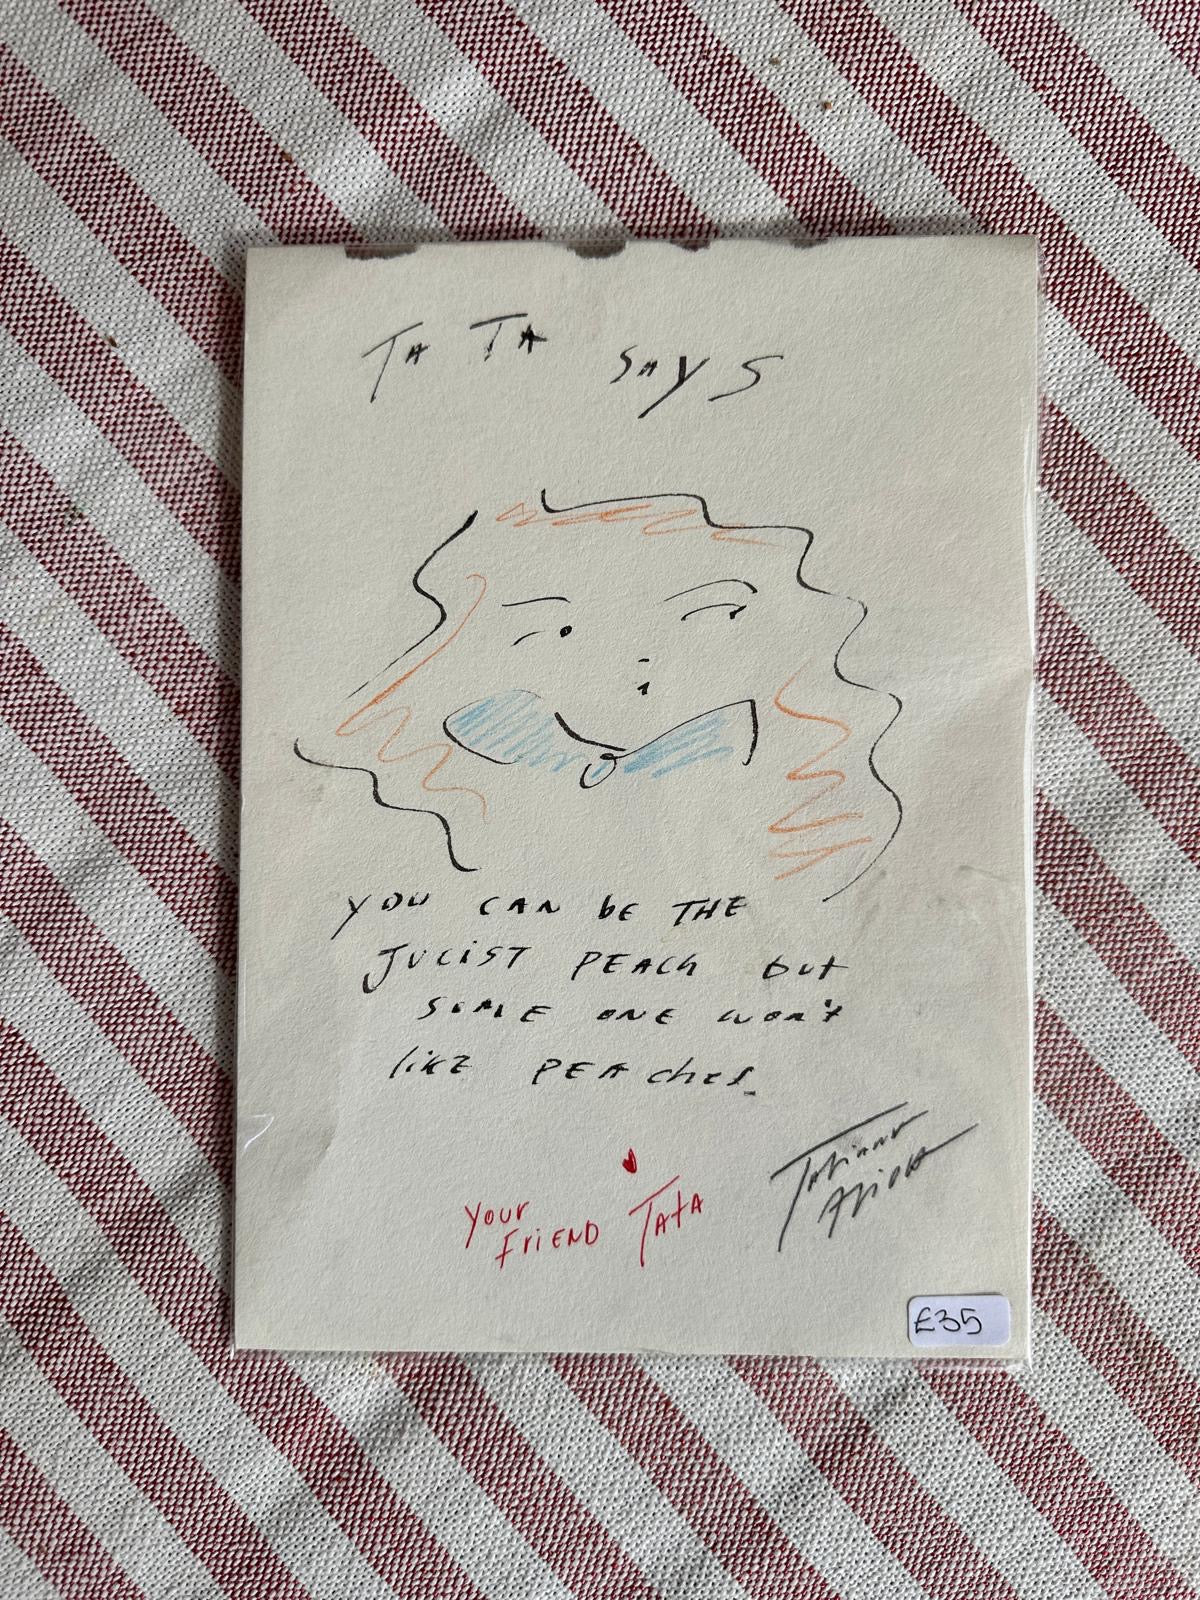 TA TA SAYS
YOU CAN bE THE
JUCIST PEACh but
SOME ONE won't
likE PEAches.
Your
FriEND TAtA
Tatiana
£35